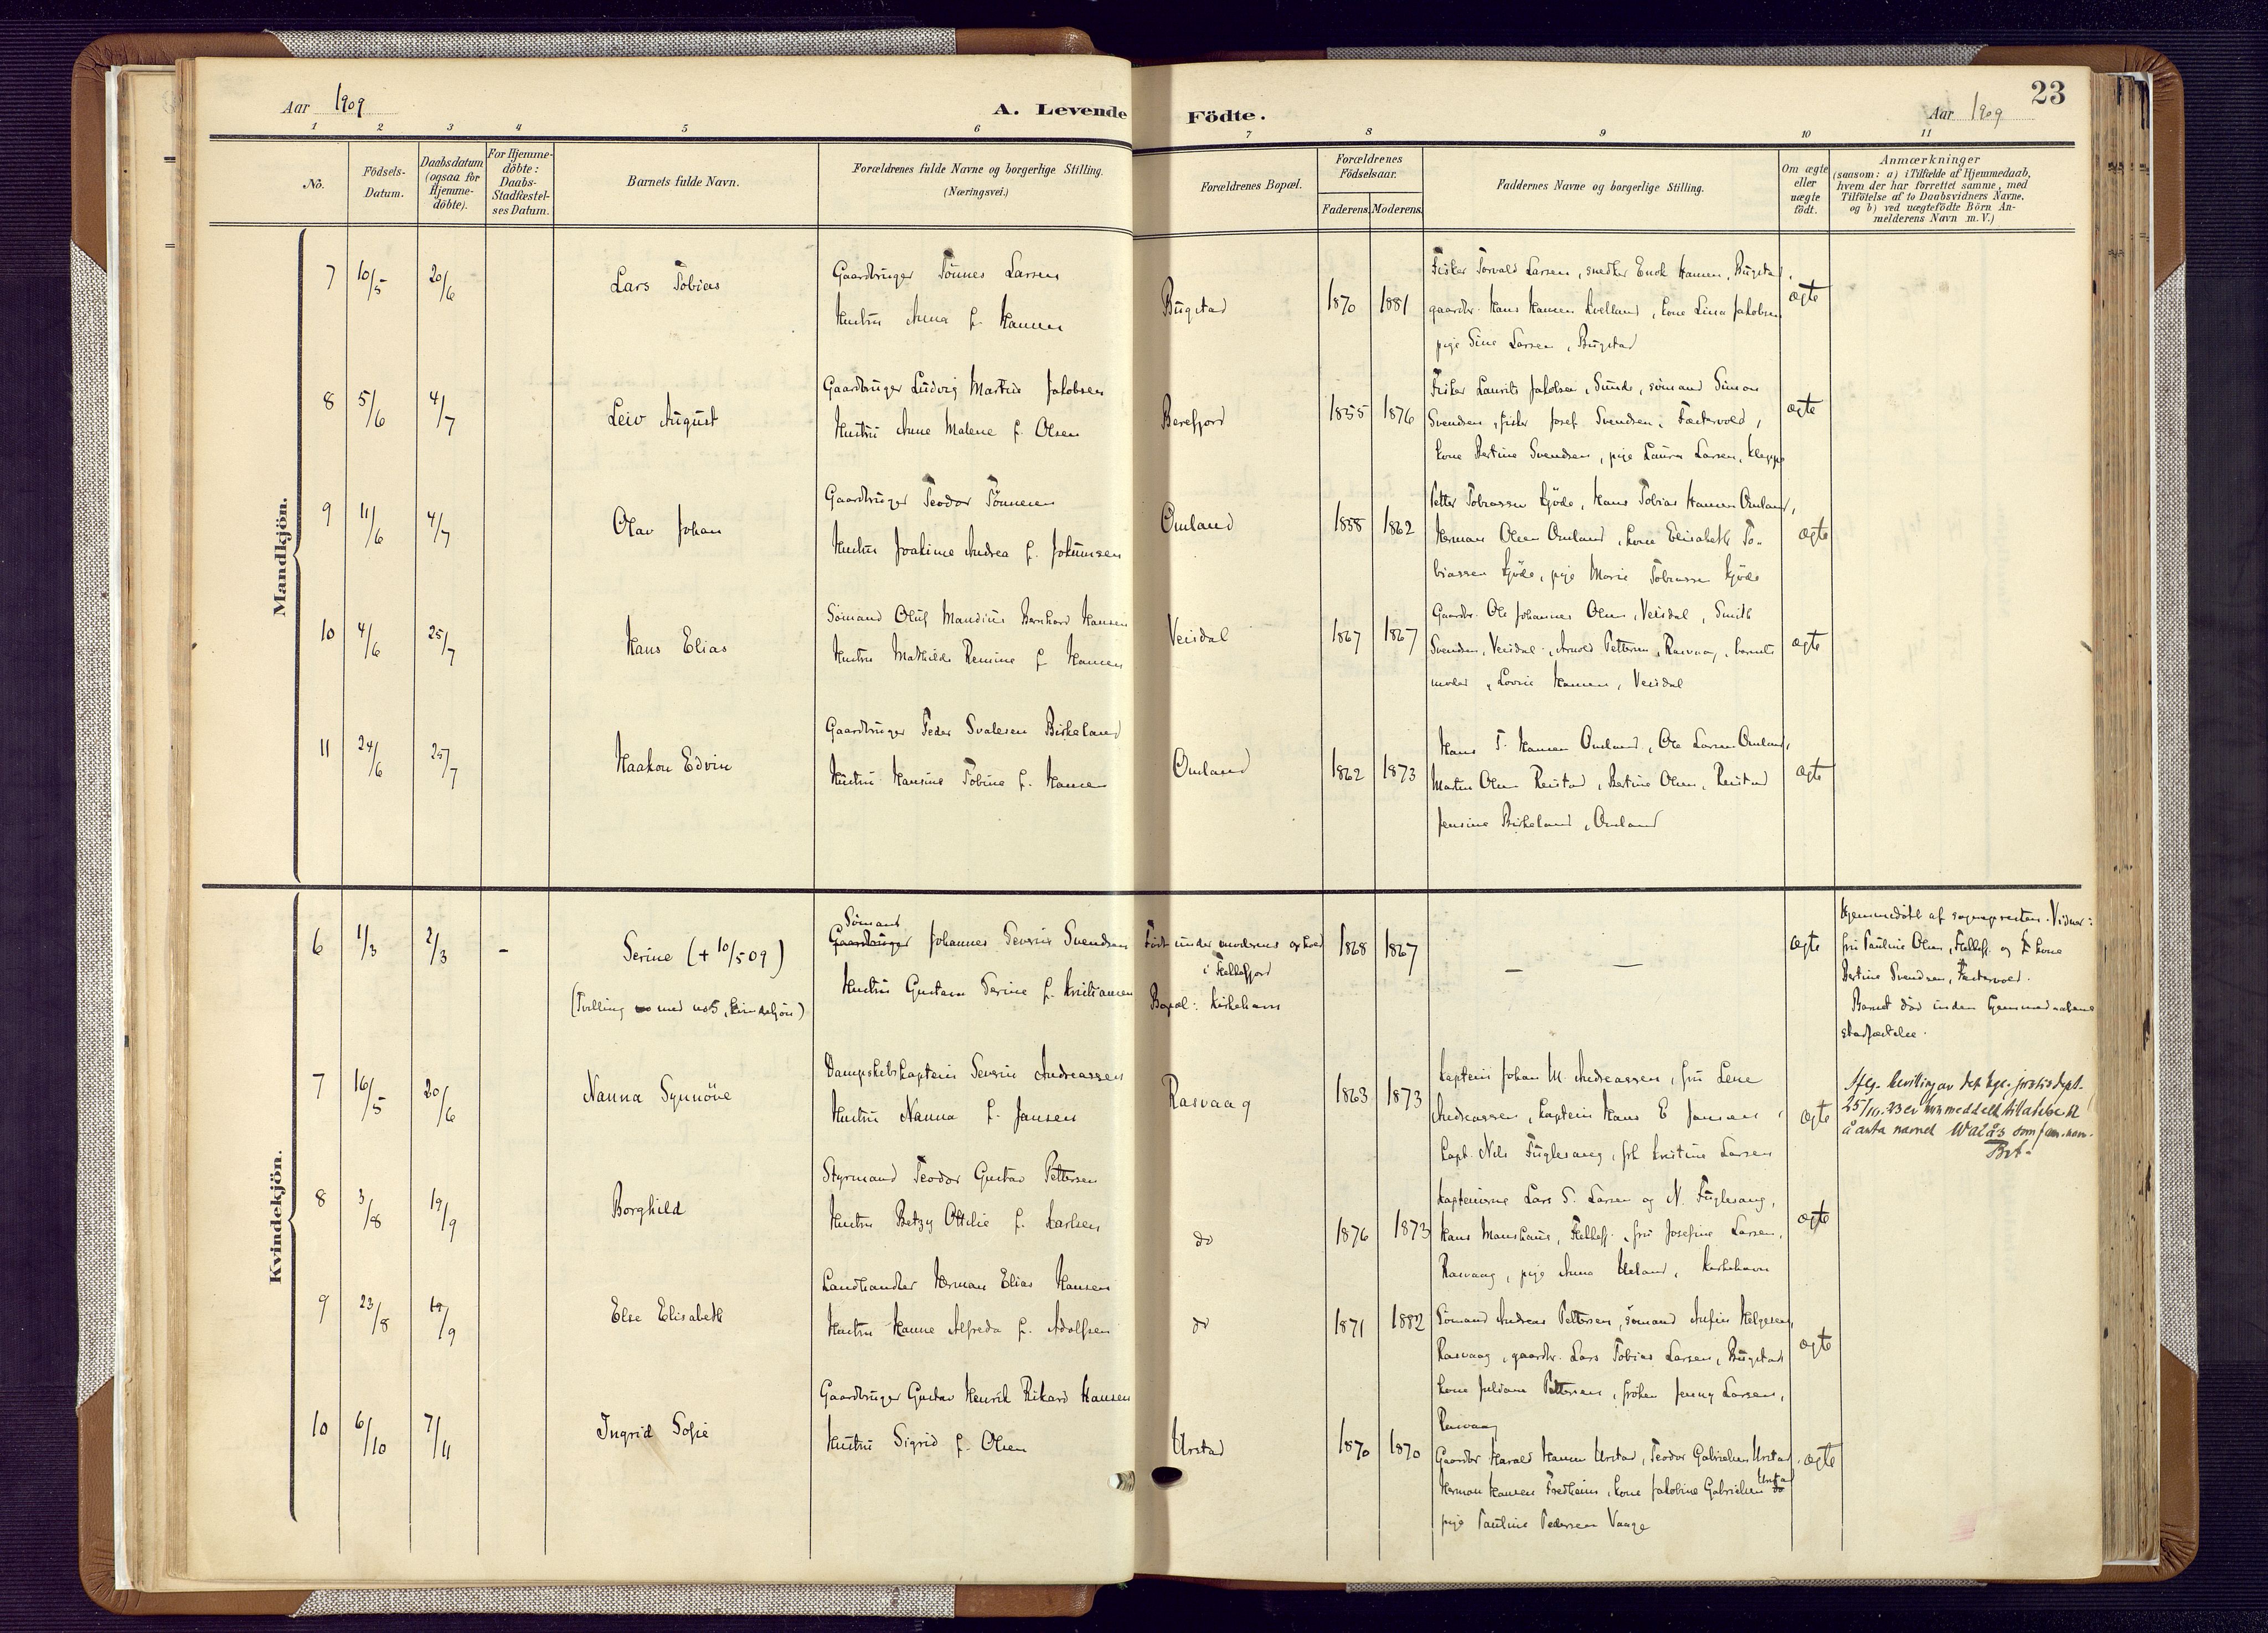 23
Aar 1909
A. Levende Födte.
Aar 1909
1 2 3 4 5 6 7 8 9 10 11
No.
Födsels-Datum.
Daabsdatum (ogsaa for Hjemme-döbte).
For Hjemme-döbte: Daabs-Stadfæstel-ses Datum.
Barnets fulde Navn.
Forældrenes fulde Navne og borgerlige Stilling. (Næringsvei.)
Forældrenes Bopæl.
Forældrenes Födselsaar.
Faderens. Moderens.
Faddernes Navne og borgerlige Stilling.
Om ægte eller uægte födt.
Anmærkninger
(saasom: a) i Tilfælde af Hjemmedaab,
hvem der har forrettet samme, med
Tilföielse af to Daabsvidners Navne,
og b) ved uægtefödte Börn An-
melderens Navn m. V.)
Mandkjön.
7 10/5 20/6 Lars Tobias
Gaardbruger Tönnes Larsen
Hustru Anna f. Hansen
Bugstad 1870 1881
Fisker Torvald Larsen, snedker Enok Hansen, Bugstad,
gaardbr. Hans Hansen Kvelland, kone Lina Jakobsen
pige Sine Larsen, Bugstad
ægte
8 5/6 4/7 Leiv August
Gaardbruger Ludvig Martin Jakobsen
Hustru Anne Malene f. Olsen
Berefjord 1855 1876
Fisker Laurits Jakobsen, Sunde, sömand Simon
Svendsen, fisker Josef Svendsen, Fastervold,
kone Bertine Svendsen, pige Laura Larsen, Klepp
ægte
9 11/6 4/7 Olav Johan
Gaardbruger Teodor Tönnesen
Hustru Joakime Andrea f. Jokumsen
Omland 1858 1862
Petter Tobiassen Kjöde, Hans Tobias Hansen Omland,
Herman Olsen Omland, kone Elisabeth To-
biassen Kjöde, pige Marie Tobiassen Kjöde
ægte
10 4/6 25/7 Hans Elias
Sömand Oluf Mandius Bernhard Hansen
Hustru Mathilde Remine f. Hansen
Veisdal 1867 1867
Gaardbr. Ole Johannes Olsen, Veisdal, Smith
Svendsen, Veisdal, Arnold Pettersen, Rasvaag, barnets
moder, Lovise Hansen, Veisdal
ægte
11 24/6 25/7 Haakon Edvin
Gaardbruger Peder Svalesen Birkeland
Hustru Hansine Tobine f. Hansen
Omland 1862 1873
Hans T. Hansen Omland, Ole Larsen Omland,
Martin Olsen Reistad, Bertine Olsen, Reistad
Jensine Birkeland, Omland
ægte
Kvindekjön.
6 1/3 2/3 - Serine (+ 10/5 09)
(Tvilling med no 5, kvindekjön)
Sömand
Gaardbruger Johannes Severin Svendsen
Hustru Gustava Serine f. Kristiansen
Födt under moderens ophold
i Flekkefjord
Bopæl: Kirkehavn
1868 1867 — —
ægte
Hjemmedöbt af sognepresten. Vidner:
fru Pauline Olsen, Flekkefj. og kone
Bertine Svendsen, Fastervold.
Barnet död inden hjemmedaabens
stadfæstelse.
7 16/5 20/6 Nanna Synnöve
Dampskibskaptein Severin Andreassen
Hustru Nanna f. Jansen
Rasvaag 1863 1873
Kaptein Johan M. Andreassen, fru Lene
Andreassen, kaptein Hans E Jansen,
kapt. Nils Fuglesang, frk Kristine Larsen
ægte
Iflg. bevilling av det kgl. justisdept.
25/10-23 er hun meddelt tillatelse til
å anta navnet Walås som fam.navn.
8 3/8 19/9 Borghild
Styrmand Teodor Gustav Pettersen
Hustru Betzy Ottilie f. Karlsen
do 1876 1873
Kapteinerne Lars T. Larsen og N. Fuglesang,
Hans Monshaus, Flekkefj., fru Josefine Larsen,
Rasvaag, pige Anna Ueland, Kirkehavn
ægte
9 23/8 19/9 Else Elisabeth
Landhandler Herman Elias Hansen
Hustru Hanne Alfreda f. Adolfsen
do 1871 1882
Sömand Andreas Pettersen, sömand Anfin Helgesen,
Rasvaag, gaardbr. Lars Tobias Larsen, Bugstad
kone Juliane Pettersen, fröken Jenny Larsen,
Rasvaag
ægte
10 6/10 7/11 Ingrid Sofie
Gaardbruger Gustav Henrik Rikard Hansen
Hustru Sigrid f. Olsen
Urstad 1870 1870
Gaardbr Harald Hansen Urstad, Teodor Gabrielsen Urstad,
Herman Hansen Fredheim, kone Jakobine Gabrielsen Urstad
pige Pauline Pedersen Vaage
ægte